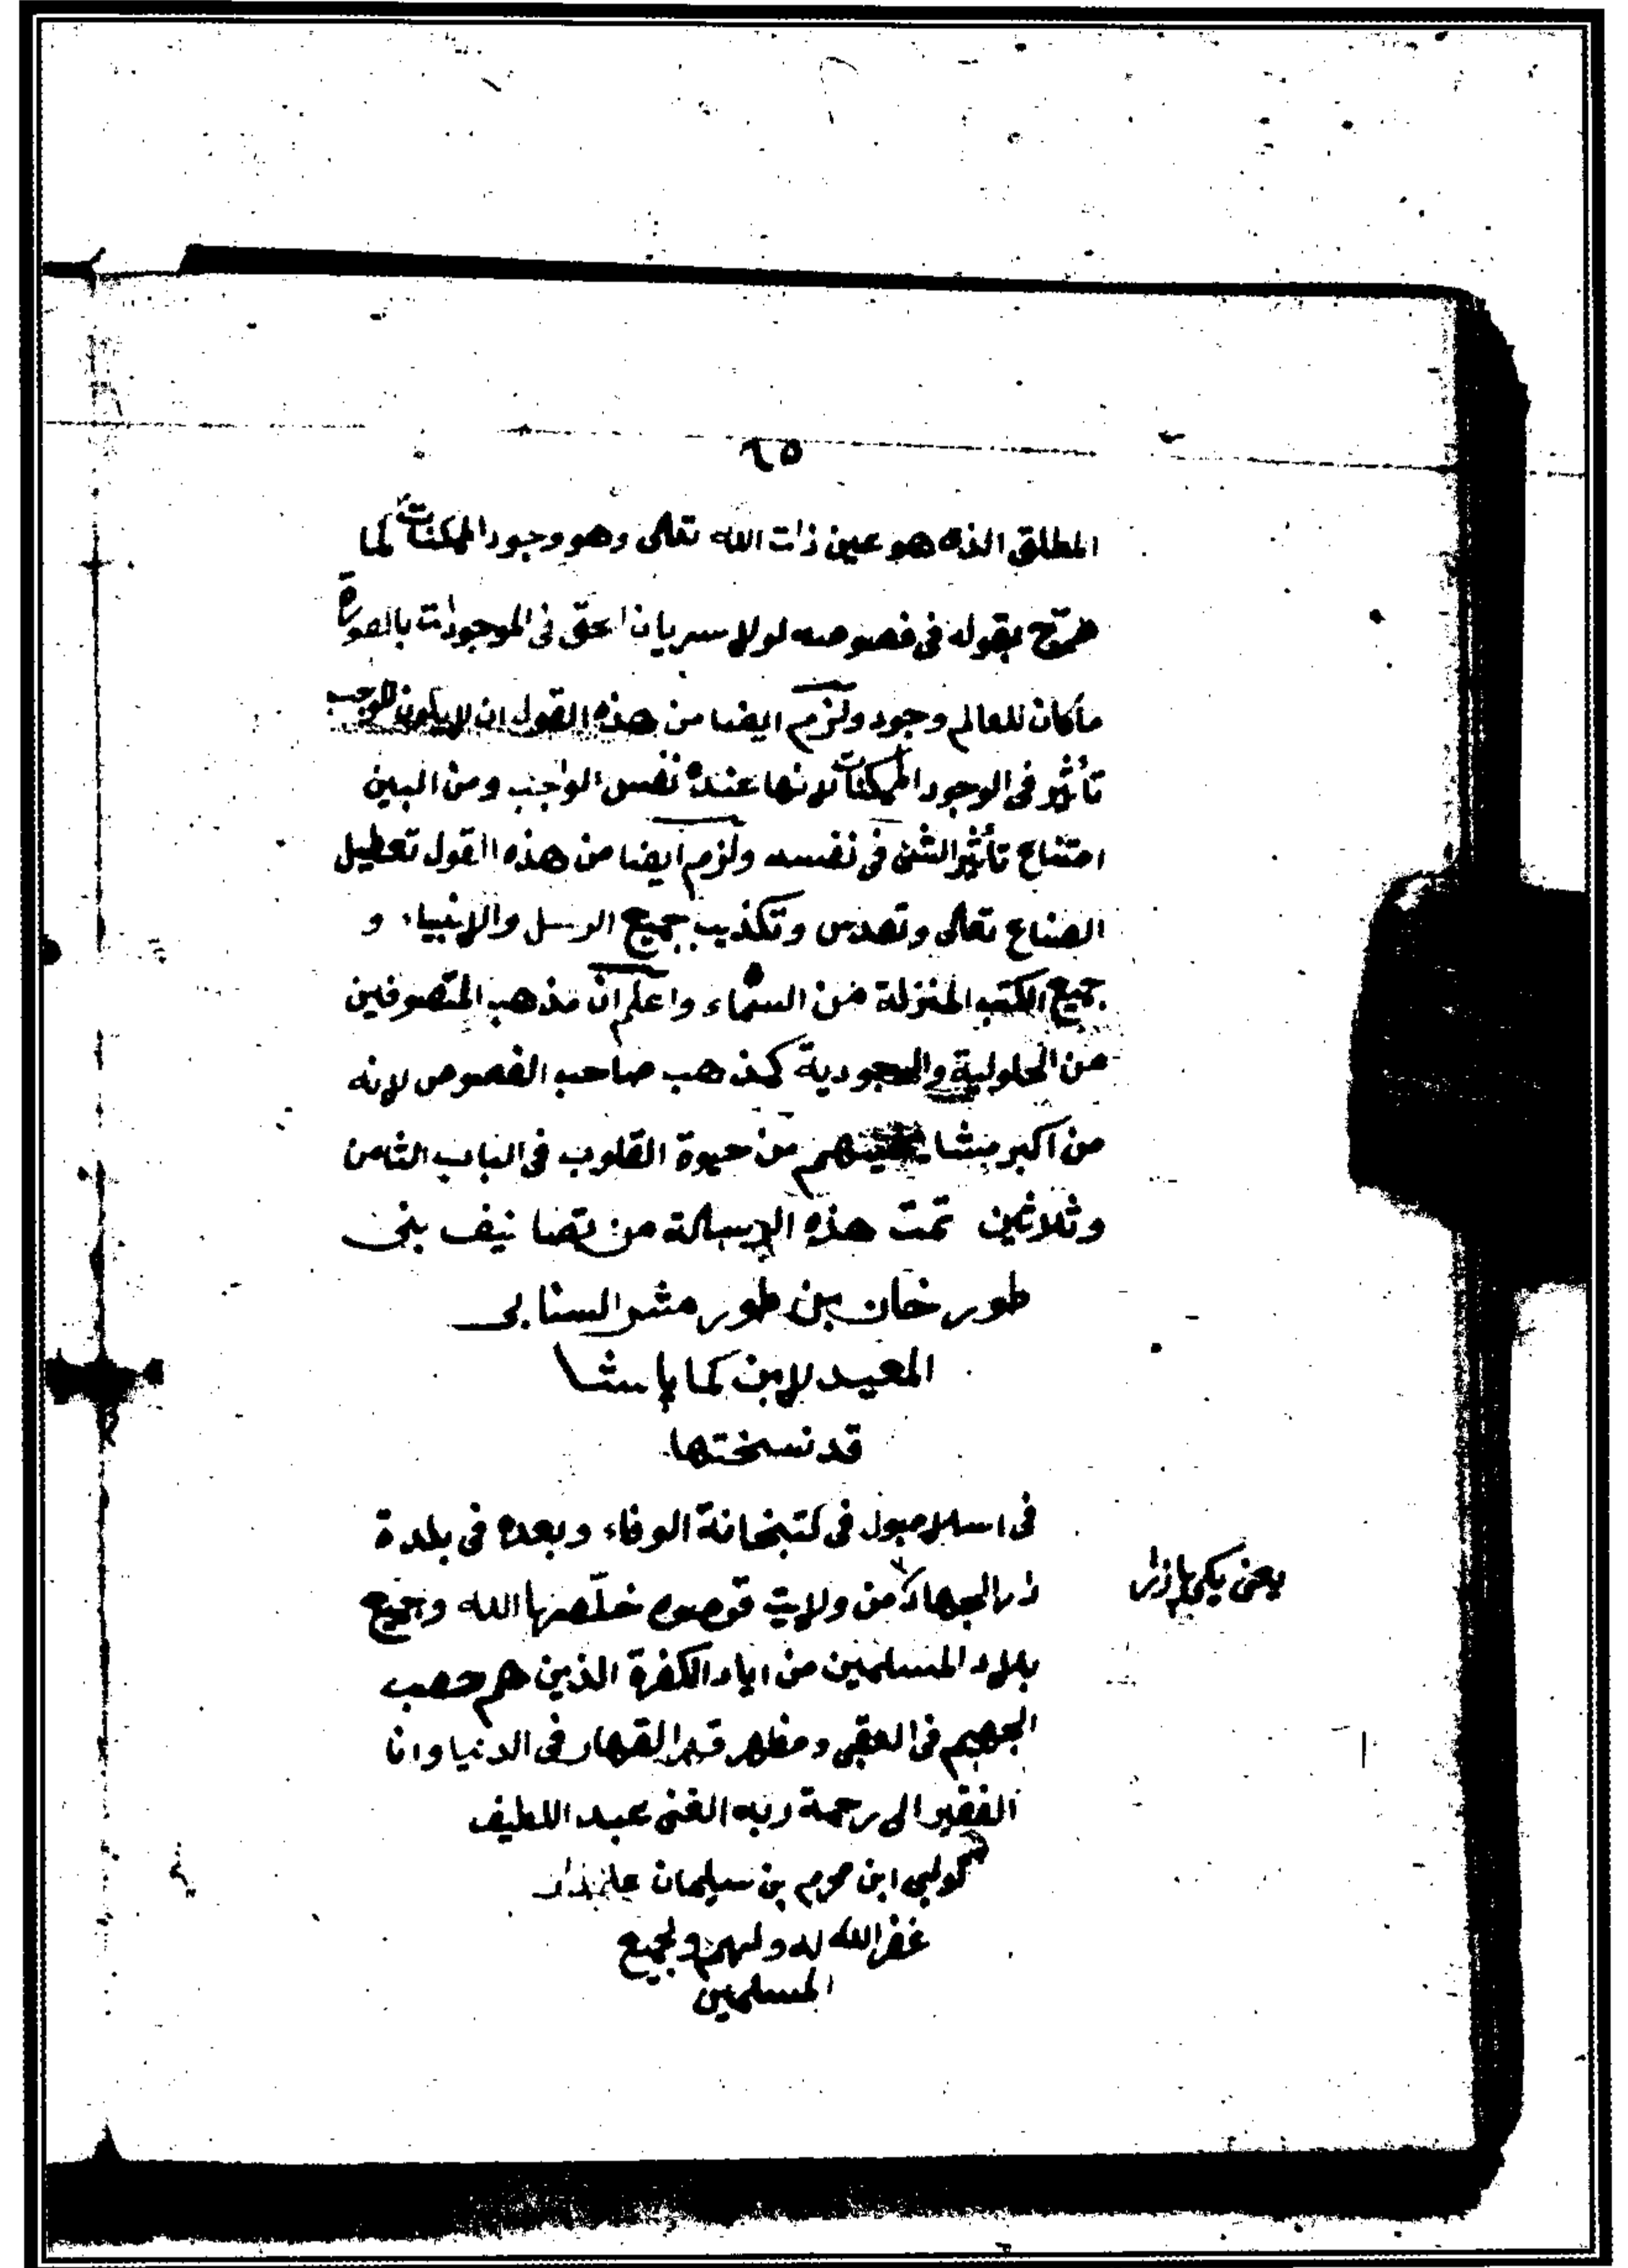 ٦٥
المطلق الذي هو عين ذات الله تعالى وهو وجود الممكنات كما
صرّح بقوله في فصوصه لولا سريان الحق في الموجودات بالصورة
ماكان للعالم وجود ولزم ايضا من هذه القول ان لايكون للواجب
تأثير في الوجود الممكنات لانها عنده نفس الواجب ومن البين
امتناع تأثير الشئ في نفسه ولزم ايضا من هذه القول تعطيل
الصناع تعالى وتقدس وتكذيب جميع الرسل والانبياء و
جميع الكتب المنزلة من السماء واعلم ان مذهب المتصوفين
من الحلولية والوجودية كمذهب صاحب الفصوص لانه
من اكبر من حيوة القلوب في الباب الثامن
وثلاثين تمت هذه الرسالة من تصانيف بنى
طورخان بن طورمش السنابى
المعيد لابن كما پاشا
قد نسختها
فى اسلامبول فى كتبخانة الوفاء وبعده فى بلدة
دار الجهاد من ولايت قوصوه خلّصها الله وجميع
يعنى يكى پازار
بلاد المسلمين من اياد الكفرة الذين هم حصب
الجحيم فى العقبى ومظهر قهر القهار فى الدنيا وانا
الفقير الى رحمة ربه الغنى عبد اللطيف
ابن محرم بن سليمان علمدار
غفر الله له ولهم ولجميع
المسلمين